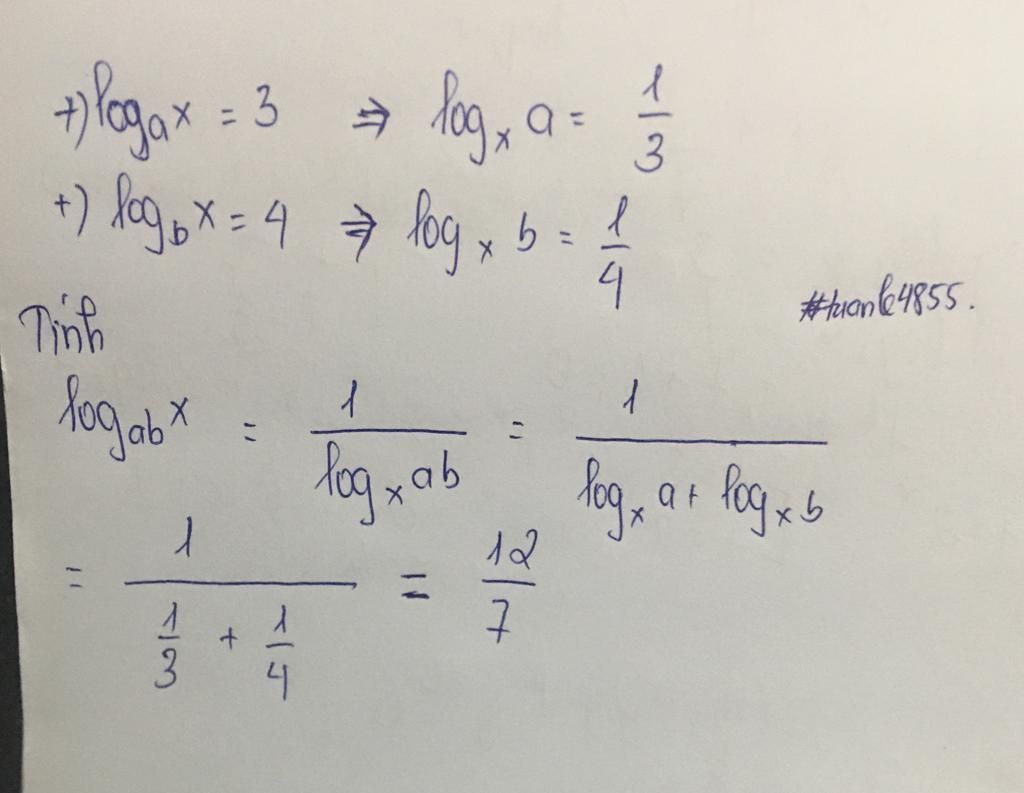 +) logₐx = 3 ⇒ logₓ a = 1/3
+) log_b x = 4 ⇒ logₓ b = 1/4
#tuanle4855.
Tính
log_ab x = 1/(logₓ ab) = 1/(logₓ a + logₓ b)
= 1/(1/3 + 1/4) = 12/7